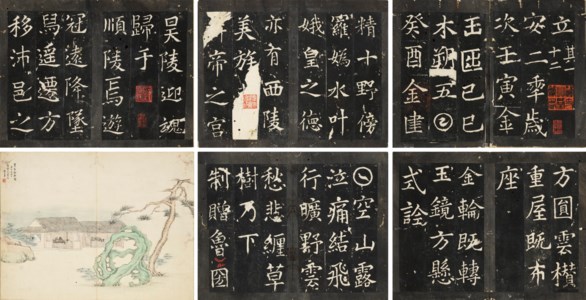 立其十二
安二年歲
次壬寅金
巳巳
木朔五
癸酉金建
精十野傍
羅嫣水叶
娥皇之德
亦有西陵
美族
帝之宮
吳陵迎魂
歸于
順陵焉遊
冠遠降墜
舄遥遷方
移沛邑之
方圓雲横
重屋既布
座
金輪既轉
玉鏡方懸
式詮
空山露
泣痛結飛
行曠野雲
愁悲纏草
樹乃下
制贈魯國